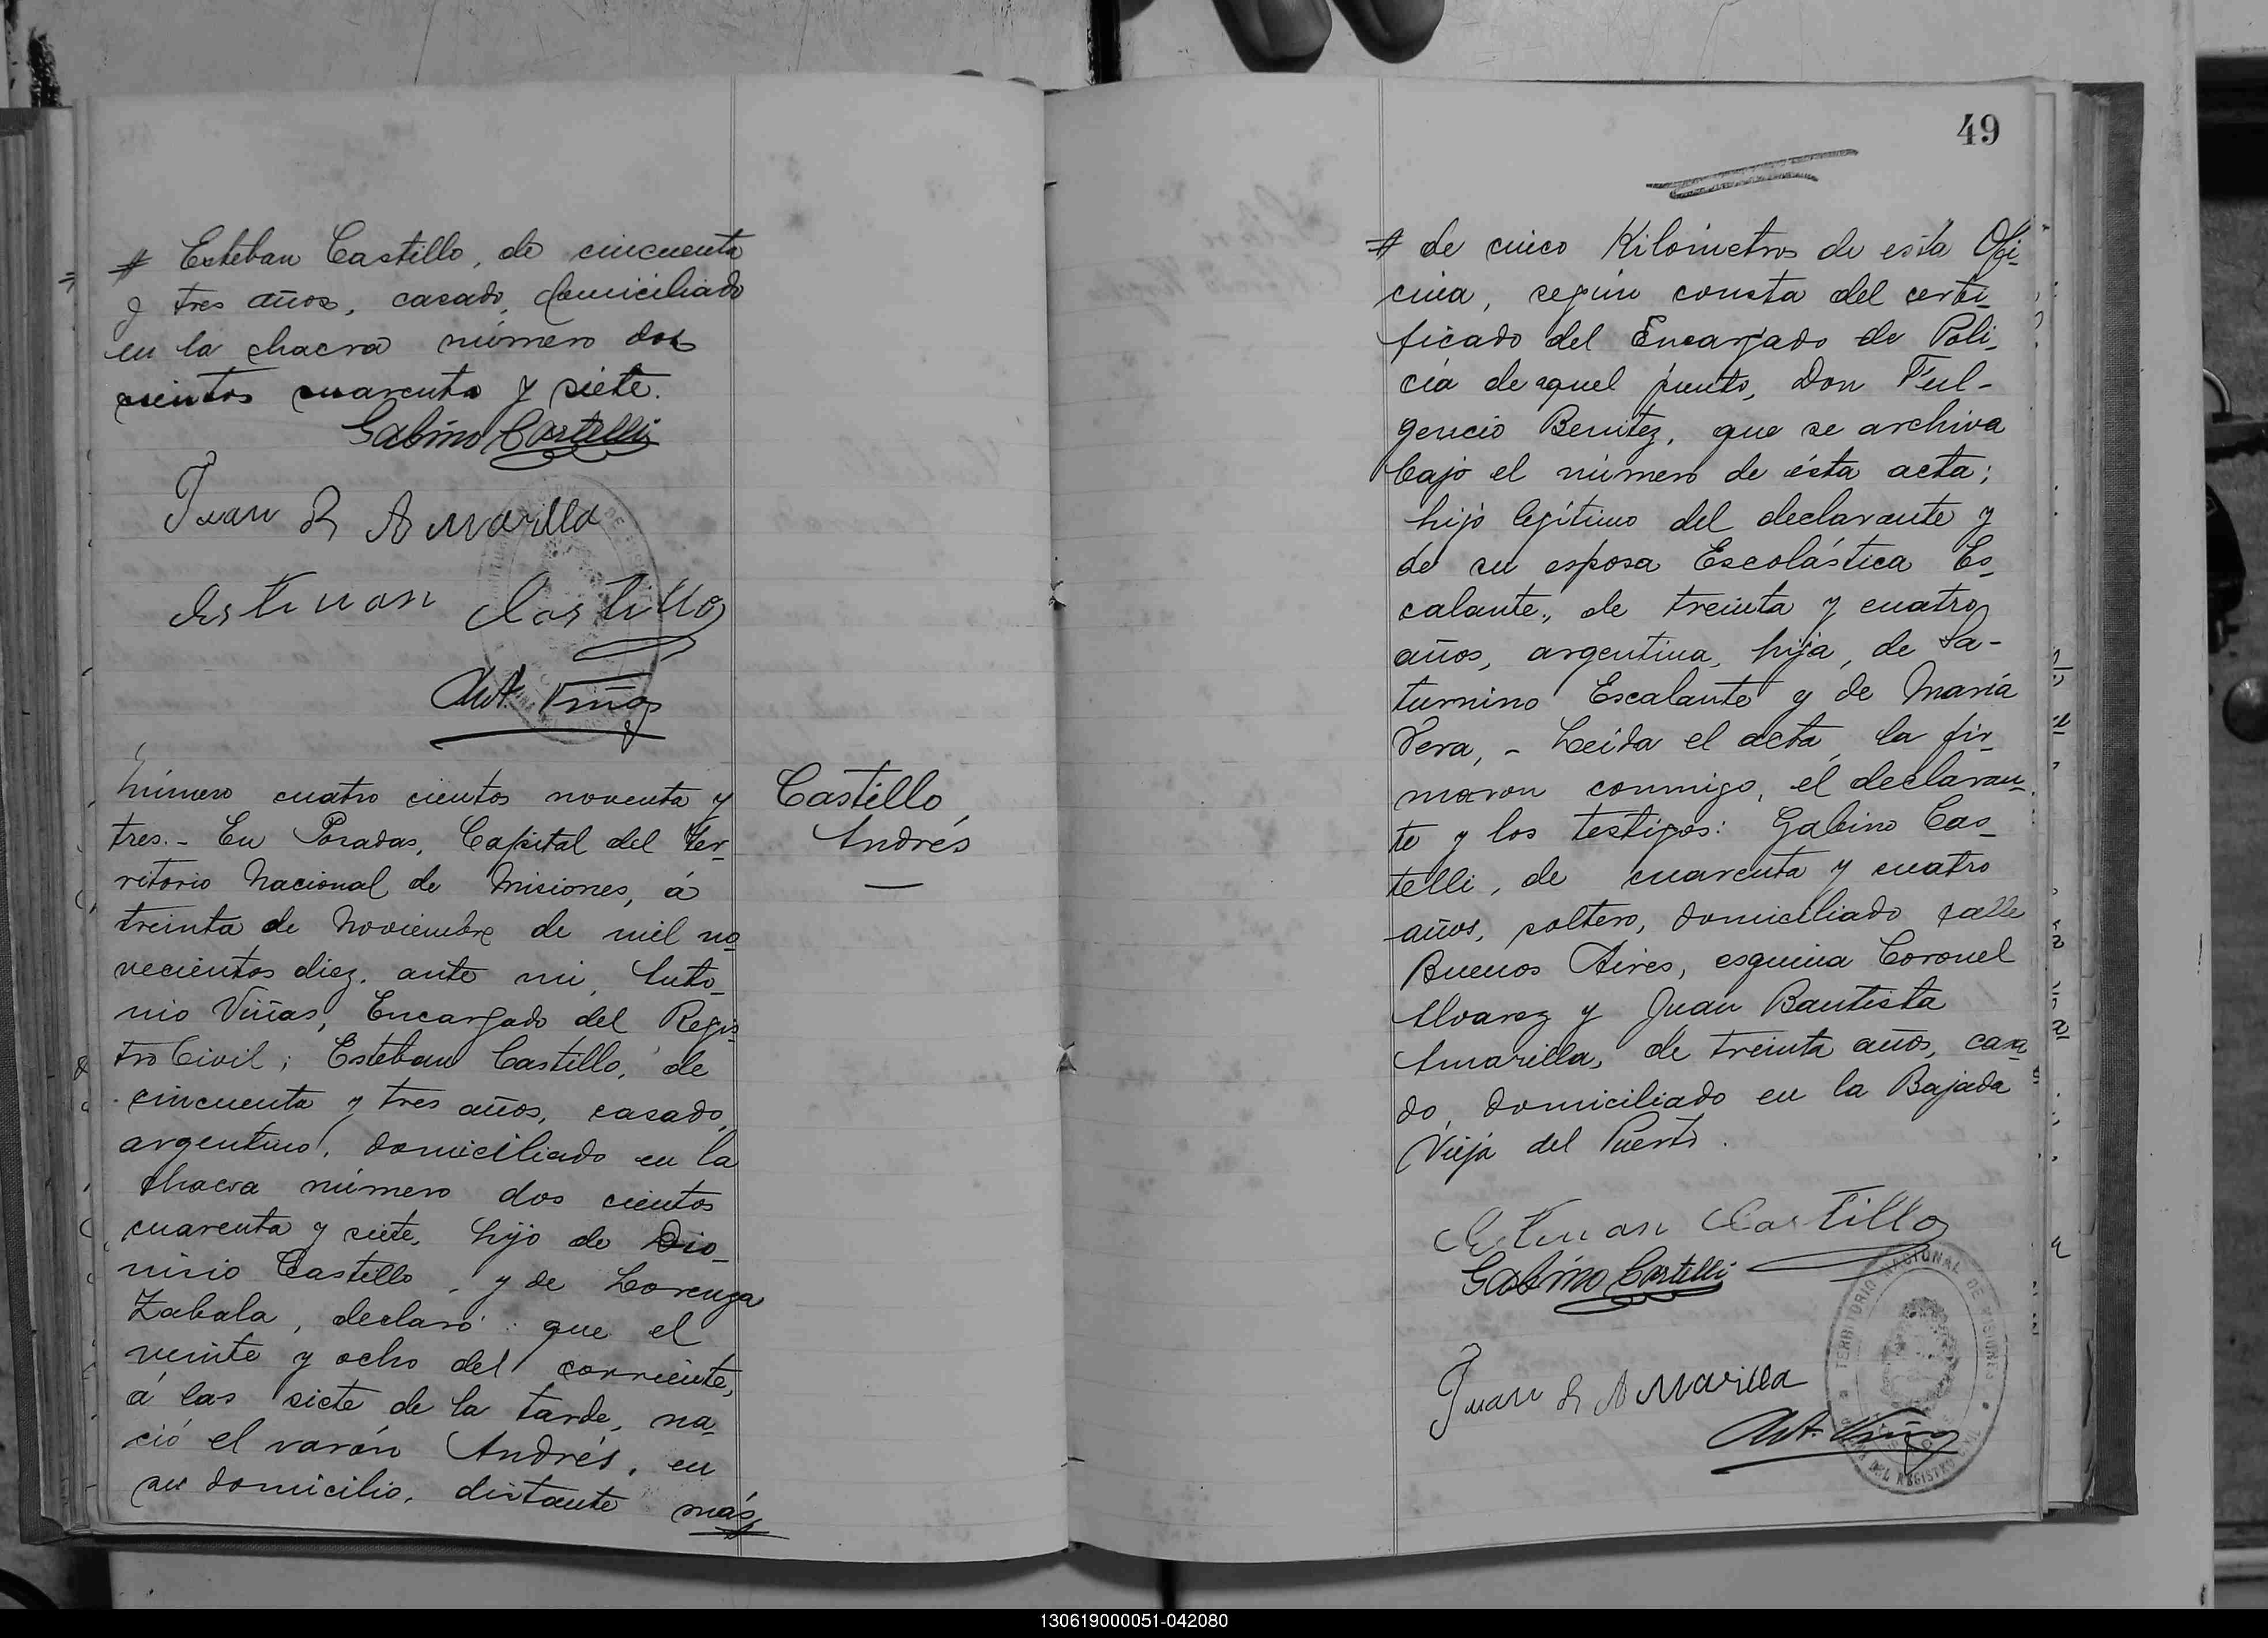 # Esteban Castillo, de cincuenta
y tres años, casado, domiciliado
en la chacra número dos
cientos cuarenta y siete.
Gabino Castelli
Juan B Amarilla
Estevan Castillo
Ant. Viñas
Número cuatro cientos noventa y
tres.- En Posadas, Capital del Ter-
ritorio Nacional de Misiones, á
treinta de Noviembre de mil no-
vecientos diez, ante mi, Anto-
nio Viñas, Encargado del Regis-
tro Civil; Esteban Castillo, de
cincuenta y tres años, casado,
argentino, domiciliado en la
chacra número dos cientos
cuarenta y siete, hijo de Dio-
nisio Castillo, y de Lorenza
Zabala, declaró: que el
veinte y ocho del corriente,
á las siete de la tarde, na-
ció el varón Andrés, en
su domicilio, distante más #
Castillo,
Andrés
—
49
# de cinco Kilómetros de esta Ofi-
cina, según consta del certi-
ficado del Encargado de Poli-
cía de aquel punto, Don Ful-
gencio Benitez, que se archiva
bajo el número de ésta acta;
hijo legítimo del declarante y
de su esposa Escolástica Es-
calante, de treinta y cuatro
años, argentina, hija, de Sa-
turnino Escalante y de María
Vera, - Leída el acta, la fir-
maron conmigo, el declaran-
te y los testigos: Gabino Cas-
telli, de cuarenta y cuatro
años, soltero, domiciliado calle
Buenos Aires, esquina Coronel
Alvarez y Juan Bautista
Amarilla, de treinta años, casa-
do, domiciliado en la Bajada
Vieja del Puerto.
Estevan Castillo
Gabino Castelli
Juan B Amarilla
Ant. Viñas
TERRITORIO NACIONAL DE MISIONES
DEL REGISTRO CIVIL
130619000051-042080